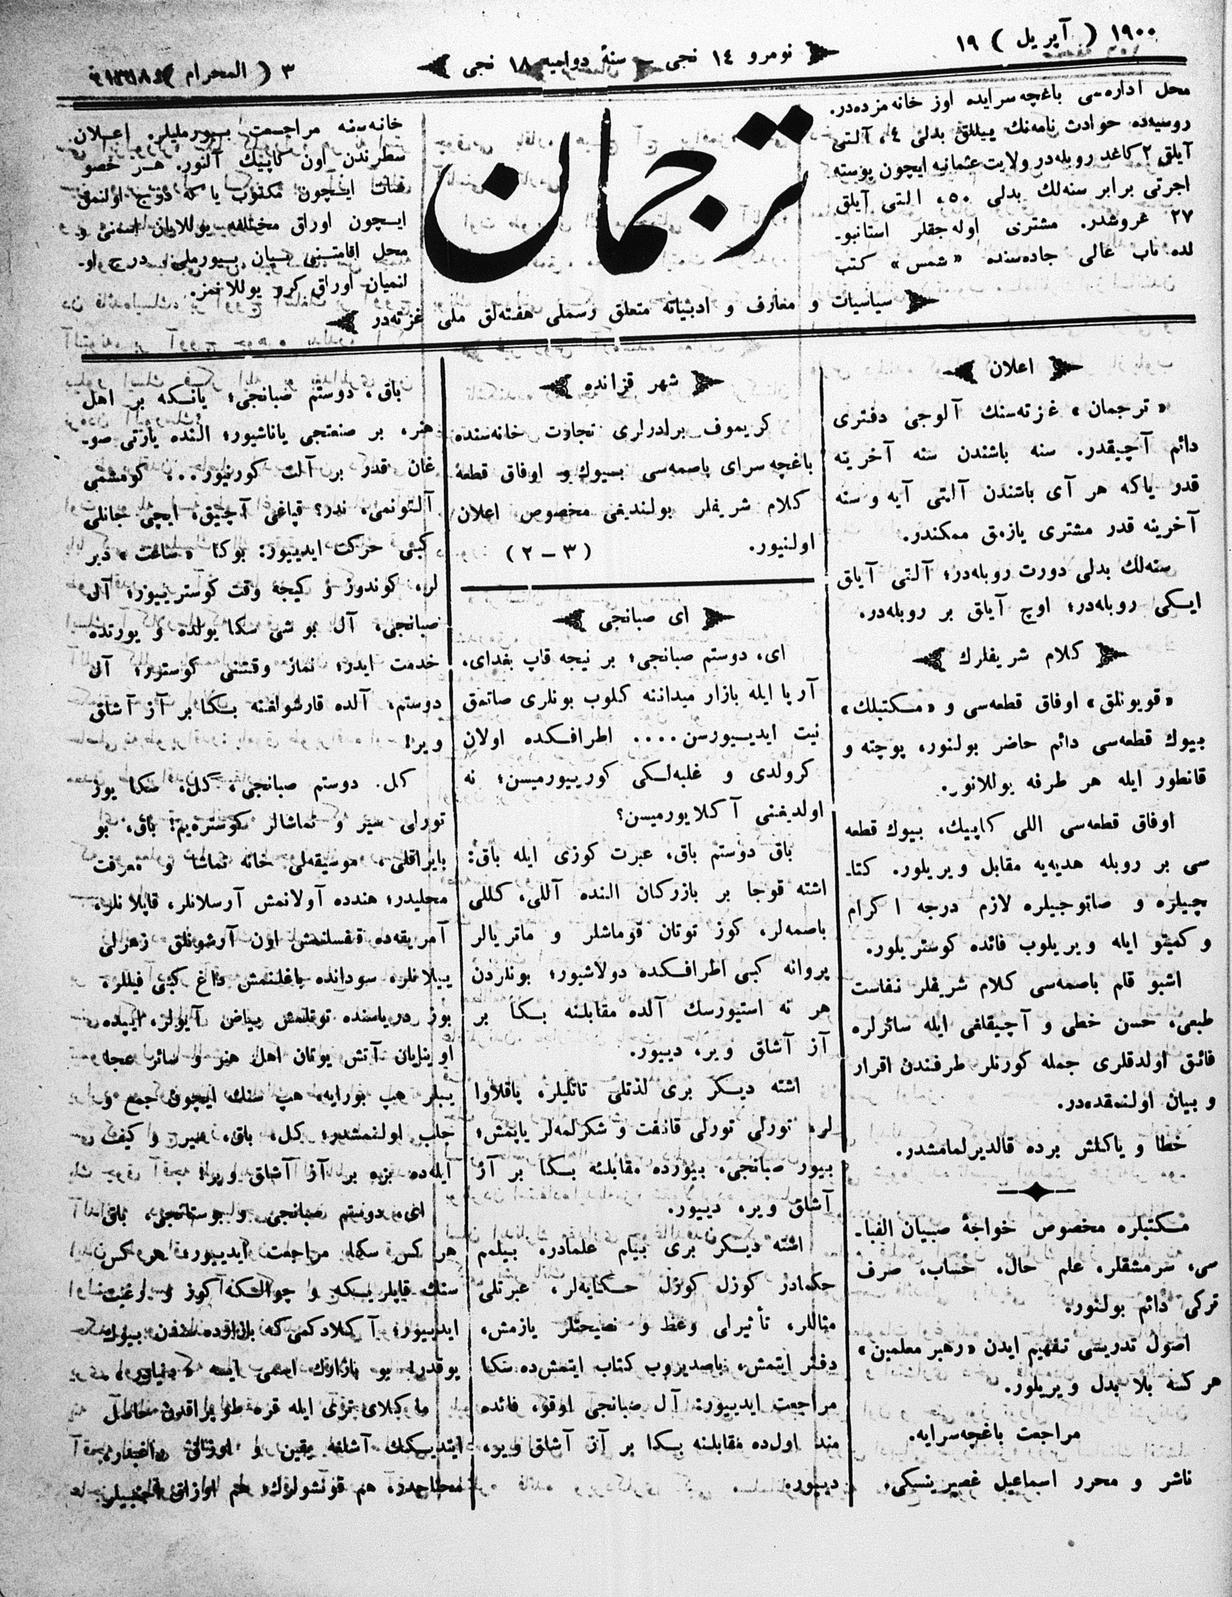 ١٩٠٠ ( آپریل ) ١٩
نومرو ١٤ نجی – سنهٔ دواجیه ١٨ نجی
٣ ( المحرام )
محل اداره‌سی باغچه‌سرایده اوز خانه‌مزده‌در.
روسیه‌ده حوادث نامه‌نك ییللق بدلی ٤، آلتی
آیلق ٢ كاغد روبله‌در ولایت عثمانیه ایچون پوسته
اجرتی برابر سنه‌لك بدلی ٥٠، التی آیلق
٢٧ غروشدر. مشتری اوله‌جقلر استانبو-
لده باب عالی جاده‌سنده «شمس» كتب
خانه‌سنه مراجعت بیورملیلر. اعلان
سطرندن اون كاپیك آلنور. هر خصو
ایچون مكتوب یا كه درج اولنمق
ایچون اوراق مختلفه یوللایان اسمنی و
محل اقامتنی بیان بیورملی. درج او-
لنمیان اوراق كرو یوللاخمز.
ترجمان
سیاسیات و معارف و ادبیاته متعلق رسملی هفته‌لق ملی غزته‌در
اعلان
«ترجمان» غزته‌سنك آلوجی دفتری
دائم آچیقدر. سنه باشندن سنه آخرینه
قدر یاكه هر آی باشندن آلتی آیه و سنه
آخرینه قدر مشتری یازمق ممكندر.
سنه‌لك بدلی دورت روبله‌در؛ آلتی آیلق
ایكی روبله‌در؛ اوچ آیلق بر روبله‌در.
كلام شریفلرك
«قویونلق» اوفاق قطعه‌سی و «مكتبلك»
بیوك قطعه‌سی دائم حاضر بولنور، پوچته و
قانطور ایله هر طرفه یوللانور.
اوفاق قطعه‌سی اللی كاپیك، بیوك قطعه
سی بر روبله هدیه‌یه مقابل ویریلور. كتا-
چیلره و صاتوجیلره لازم درجه اكرام
و كمیتو ایله ویریلوب فائده كوستریلور.
اشبو قلم باصمه‌سی كلام شریفلر نفاست
طبعی، حسن خطی و آچیقلغی ایله سائرلره
فائق اولدقلری جمله كورنلر طرفندن اقرار
و بیان اولنمقده‌در.
خطا و یاكلش برده قالدیرلمامشدر.
مكتبلره مخصوص خواجهٔ صبیان الفبا-
سی، سرمشقلر، علم حال، حساب، صرف
تركی دائم بولنور.
اصول تدریسی تفهیم ایدن «رهبر معلمین»
هر كسه بلا بدل ویریلور.
مراجعت باغچه‌سرایه.
ناشر و محرر اسماعیل غصپرینسكی.
شهر قزانده
كریموف برادرلری تجارت خانه‌سنده
باغچه‌سرای باصمه‌سی بیوك و اوفاق قطعهٔ
كلام شریفلر بولندیغی مخصوص اعلان
اولنیور. (٣ – ٢)
ای صبانجی
ای، دوستم صبانجی؛ بر نیجه قاپ بغدای،
آرپا ایله بازار میداننه كلوب بونلری صاتمق
نیت ایدییورسن.... اطرافكده اولان
كرولدی و غلبه‌لكی كوریبورمیسن؛ نه
اولدیغنی آكلایورمیسن؟
باق دوستم باق، عبرت كوزی ایله باق:
اشته قوجا بر بازركان النده آللی، كللی
باصمه‌لر، كوز توتان قوماشلر و ماتریالر
پروانه كبی اطرافكده دولاشیور؛ بونلردن
هر نه استیورسك آلده مقابلنه بكا بر
آز آشلق ویر، دییور.
اشته دیكر بری لذتلی تاتلیلر، یاقلاوا
لر، تورلی تورلی قانفت و شكرلمه‌لر یاپمش؛
بیور صبانجی، بیورده مقابلنه بكا بر آز
آشلق ویر، دییور.
اشته دیكر بری بیلم علمادر، بیلمم
حكمادر كوزل كوزل حكایه‌لر، عبرتلی
مثاللر، تأثیرلی وعظ و نصیحتلر یازمش،
دفتر ایتمش، باصدیروب كتاب ایتمش‌ده سكا
مراجعت ایدییور: آل صبانجی اوقو، فائده
مند اول‌ده مقابلنه بكا بر آز آشلق ویر،
دییور.
باق، دوستم صبانجی؛ یانكه بر اهل
هنر، بر صنعتجی یاناشیور؛ النده یارتی صو-
غان قدر بر آلت كورنیور...، كومشمی
آلتونمی، ندر؟ قپاغی آچیق، ایچی جانلی
كبی حركت ایدییور: بوكا «ساعت» دیر
لر، كوندوز و كیجه وقت كوستریبور؛ آل
صبانجی، آل بو شی سكا یولده و یورتده
خدمت ایدر؛ نماز وقتنی كوسترر؛ آل
دوستم، آلده قارشولغنه بكا بر آز آشلق
ویر!
كل. دوستم صبانجی، كل، سكا یوز
تورلی سیر و تماشالر كوستره‌یم! باق، بو
بایراقلی، موسیقه‌لی خانه تماشا و معرفت
محلیدر؛ هندده آولانمش آرسلانلر، قاپلانلر،
آمریقه‌ده قفسلنمش اون آرشونلق زهرلی
ییلانلر، سودانده باغلنمش داغ كبی فیللر،
بوز دریاسنده توتلمش بیاض آیولر، ایپده
اوینایان آتش یوتان اهل هنر و سائر عجا
یبلر هپ بورایه، هپ سنك ایچون جمع و
جلب اولنمشدر؛ كل، باق، سیر و كیف
ایله‌ده بزه بر آز آشلق ویر!
ای، دوستم صبانجی و بوستانجی، باق
هر كس سكا مراجعت ایدییور، هر كس
سنك قاپلریكه و چوالكه كوز و رغبت
ایدییور؛ آكلادكمی كه بازارده سندن بیوك
یوقدر؛ بو بازارك اسمی ایسه «دنیا»در،